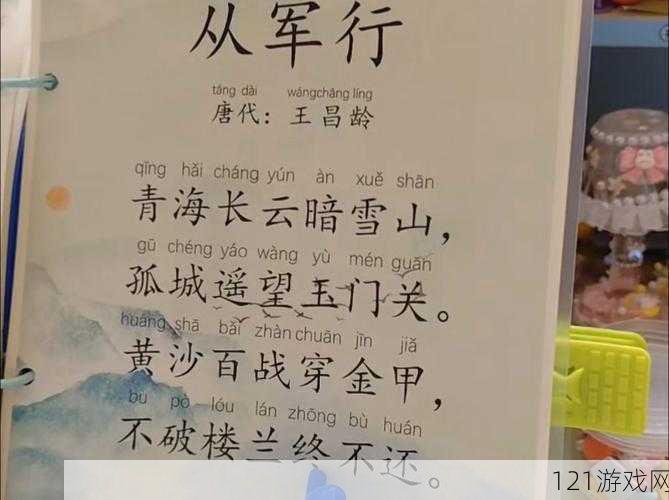 从军行
táng dài wángchāng líng
唐代：王昌龄
qīng hǎi cháng yún àn xuě shān
青海长云暗雪山，
gū chéng yáo wàng yù mén guān
孤城遥望玉门关。
huáng shā bǎi zhàn chuān jīn jiǎ
黄沙百战穿金甲，
bù pò lóu lán zhōng bù huán
不破楼兰终不还。
121游戏网